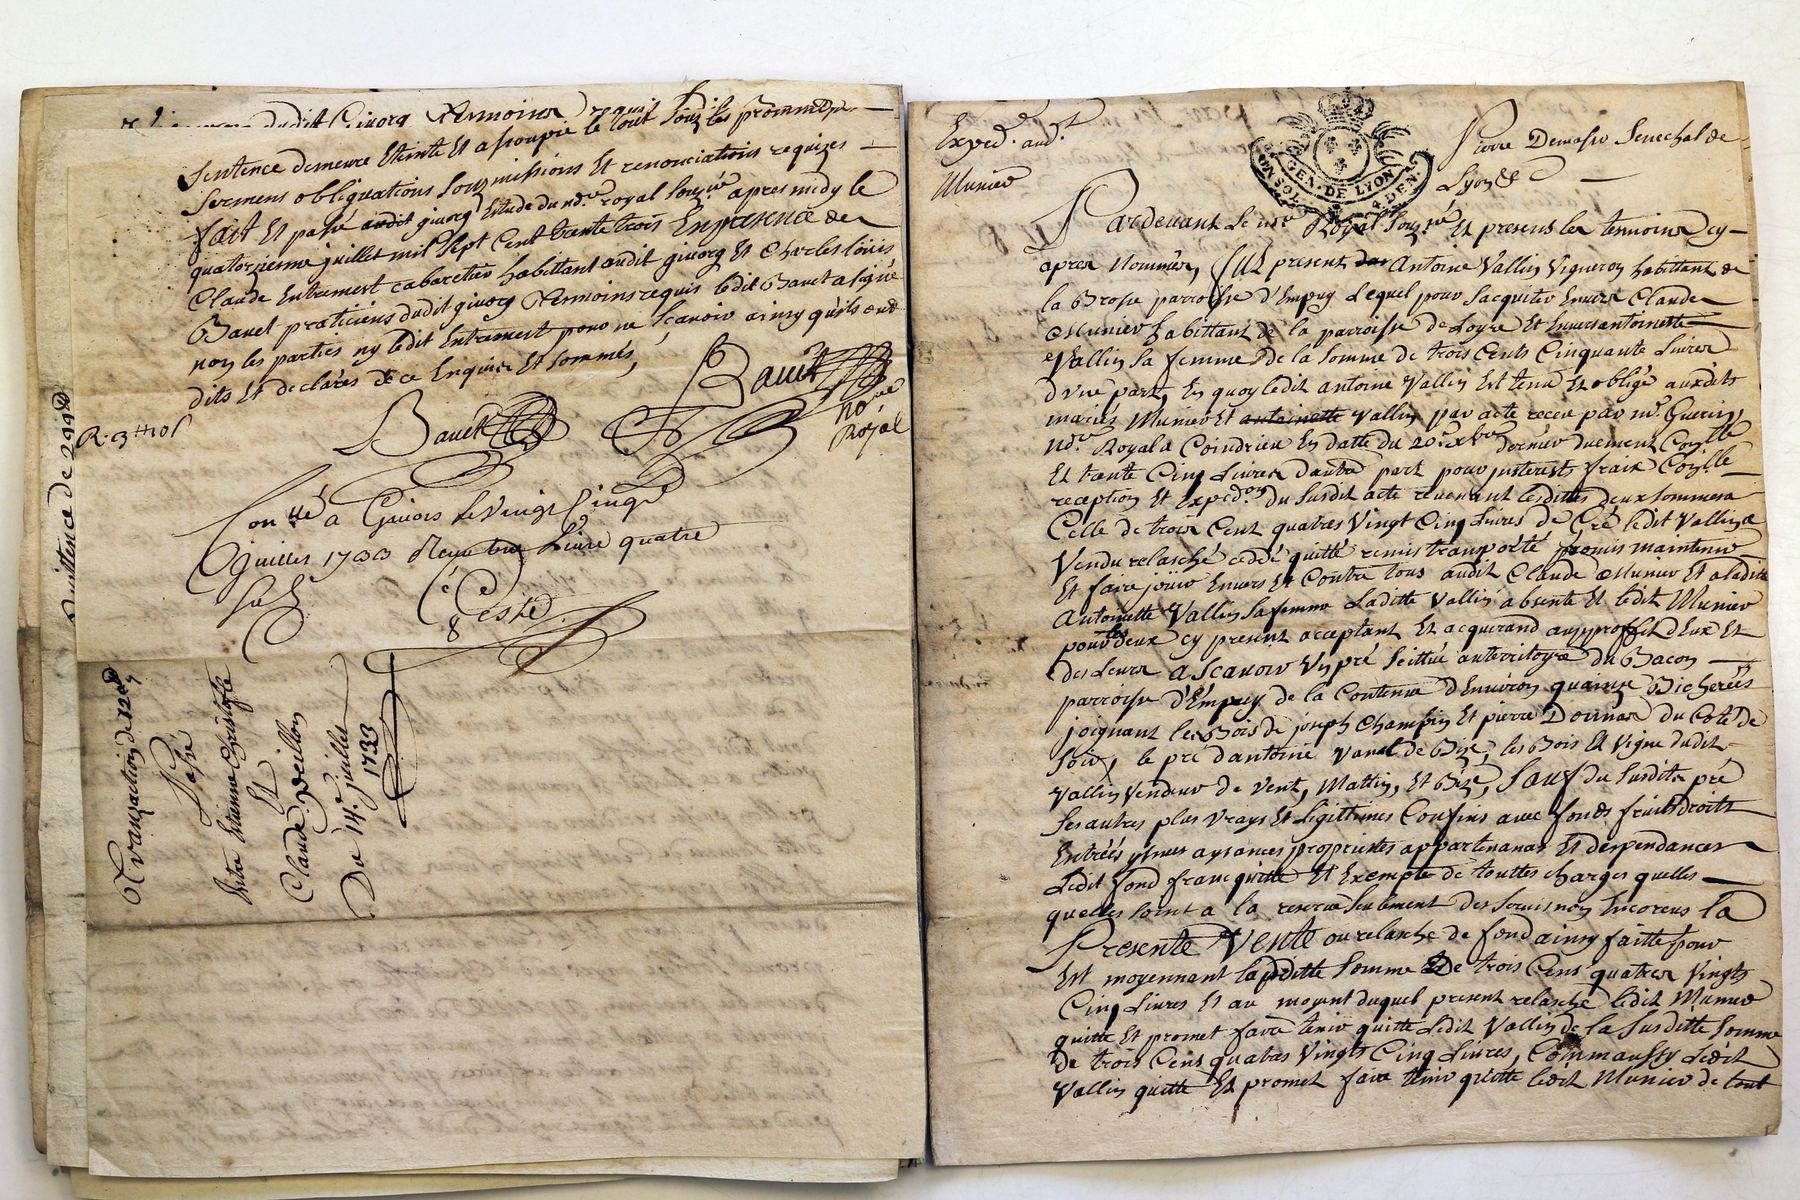 dudit Givorq temoins requit
sentence demeure Eteinte Et assoupie le tout souz les prommesses
sermens obliguations souzmissions Et renonciations requizes
fait Et passé audit givorq Estude du nore royal souzné apres midy le
quatorzieme juillet mil sept cent trente trois En presence de
Claude Entremest cabaretier habittant audit givorq Et Charles loüis
Bavet praticiens dudit givorq temoins requis ledit Bavet a signé
non les parties ny ledit Entremest pour ne scavoir ainsy quils ont
dits Et declarés de ce Enquis Et sommés,
Bavet
Bavet
nore
Royal
R. 3 tt 10 s
Conllé a Givors le vingt cinq
juillet 1733 Reçu trois Livre quatre
sols
Ceste
Quittence de 299
Transaction de 120
Passé
Entre Etienne Christofle
Et
Claude Veillon
Du 14e juillet
1733
Exped. aud.t
Munier
GEN. DE LYON
2 SOLS 4 DEN.
Pierre Demasso Senechal de
Lyon &
Pardevant Le nre Royal souzné Et presens les temoins cy
apres Nommés, fut present Antoine Vallin Vigneron habittant de
la Brosse parroisse d'Empuy Lequel pour sacquiter Envers Claude
Munier habittant de la parroisse de Loyre Et Envers antoinette
Vallin sa femme de la somme de trois cents Cinquante Livres
d'une part, En quoy ledit antoine Vallin Est tenu Et obligé auxdits
mariés Munier Et antoinette Vallin par acte receu par mr. Guerin
nore Royal a Coindrieu En datte du 20e xbre dernier duement Conllé
Et trente Cinq Livres dautre part pour interests fraix Conlle
reception Et expedon du susdit acte revenant lesdittes deux sommes a
Celle de trois Cent quatres Vingt Cinq Livres de Gré ledit Vallin a
Vendu relasché ceddé quitté remis transporté promis maintenir
Et faire joüir Envers Et Contre tous audit Claude Munier Et a ladite
Antoinette Vallin sa femme Laditte Vallin absente Et ledit Munier
pour les deux cy present acceptant Et acquerand au proffit d'Eux Et
des Leurs a scavoir Un pré scittué au territoyre du Bacon
parroisse d'Empuy de la Contenue d'Environ quainze Bicherées
joignant les Bois de joseph Champin Et pierre Donnas du Coté de
soir, le pré dantoine Vanel de Bize, les Bois Et Vigne dudit
Vallin Vendeur de Vent, Mattin, Et Bize, sauf du susdits pré
ses autres plus Vrays Et Ligittimes Confins avec fonds fruits droits
Entrées yssues aysances proprietes appartenances Et despendances
Ledit fond franc quitte Et Exempte de touttes charges quelles
quelles soint a la reserve seulement des servis non Encourus la
Presente Vente ou relasche de fond ainsy faitte pour
Et moyennant laditte somme De trois Cens quatres Vingts
Cinq Livres Et au moyent duquel present relasché ledit Munier
quitte Et promet faire tenir quitte Ledit Vallin de la susditte somme
De trois Cens quatres Vingts Cinq Livres, Comm'aussy Ledit
Vallin quitte Et promet faire tenir quitte ledit Munier de tout